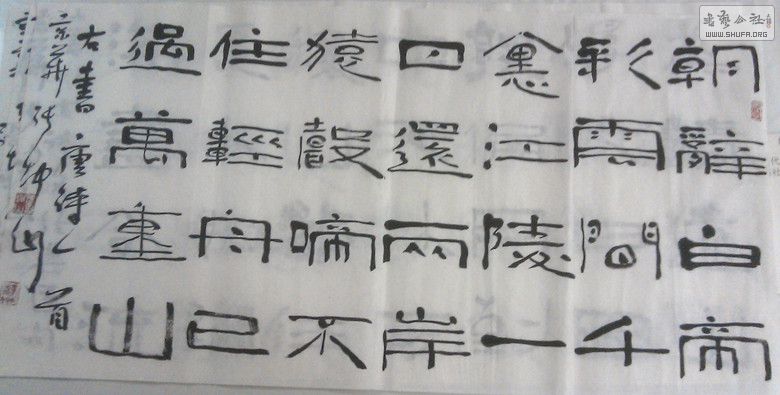 朝辭白帝
彩雲間千
江陵一
日還兩岸
猿聲啼不
住輕舟已
過萬重山
右書唐詩一首
京華
書藝公社
WWW.SHUFA.ORG